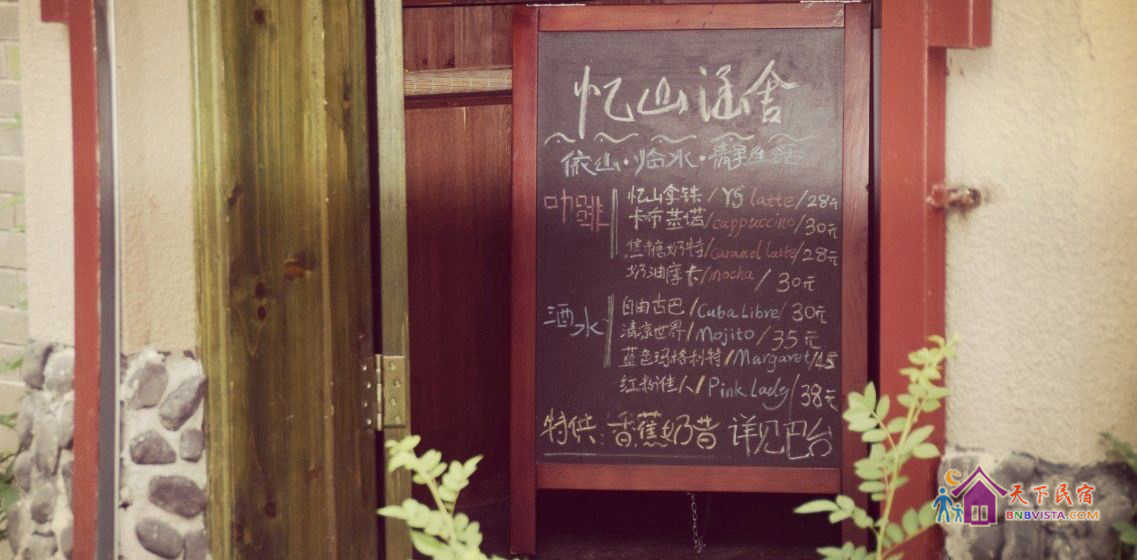 忆山涵舍
依山·临水·静生活
咖啡
忆山拿铁/YS latte/28元
卡布基诺/cappuccino/30元
焦糖奶特/Caramel latte/28元
奶油摩卡/mocha/30元
酒水
自由古巴/Cuba Libre/30元
清凉世界/Mojito/35元
蓝色玛格利特/Margaret/45
红粉佳人/Pink Lady/38元
特供:香蕉奶昔 详见吧台
天下民宿
BNBVISTA.COM